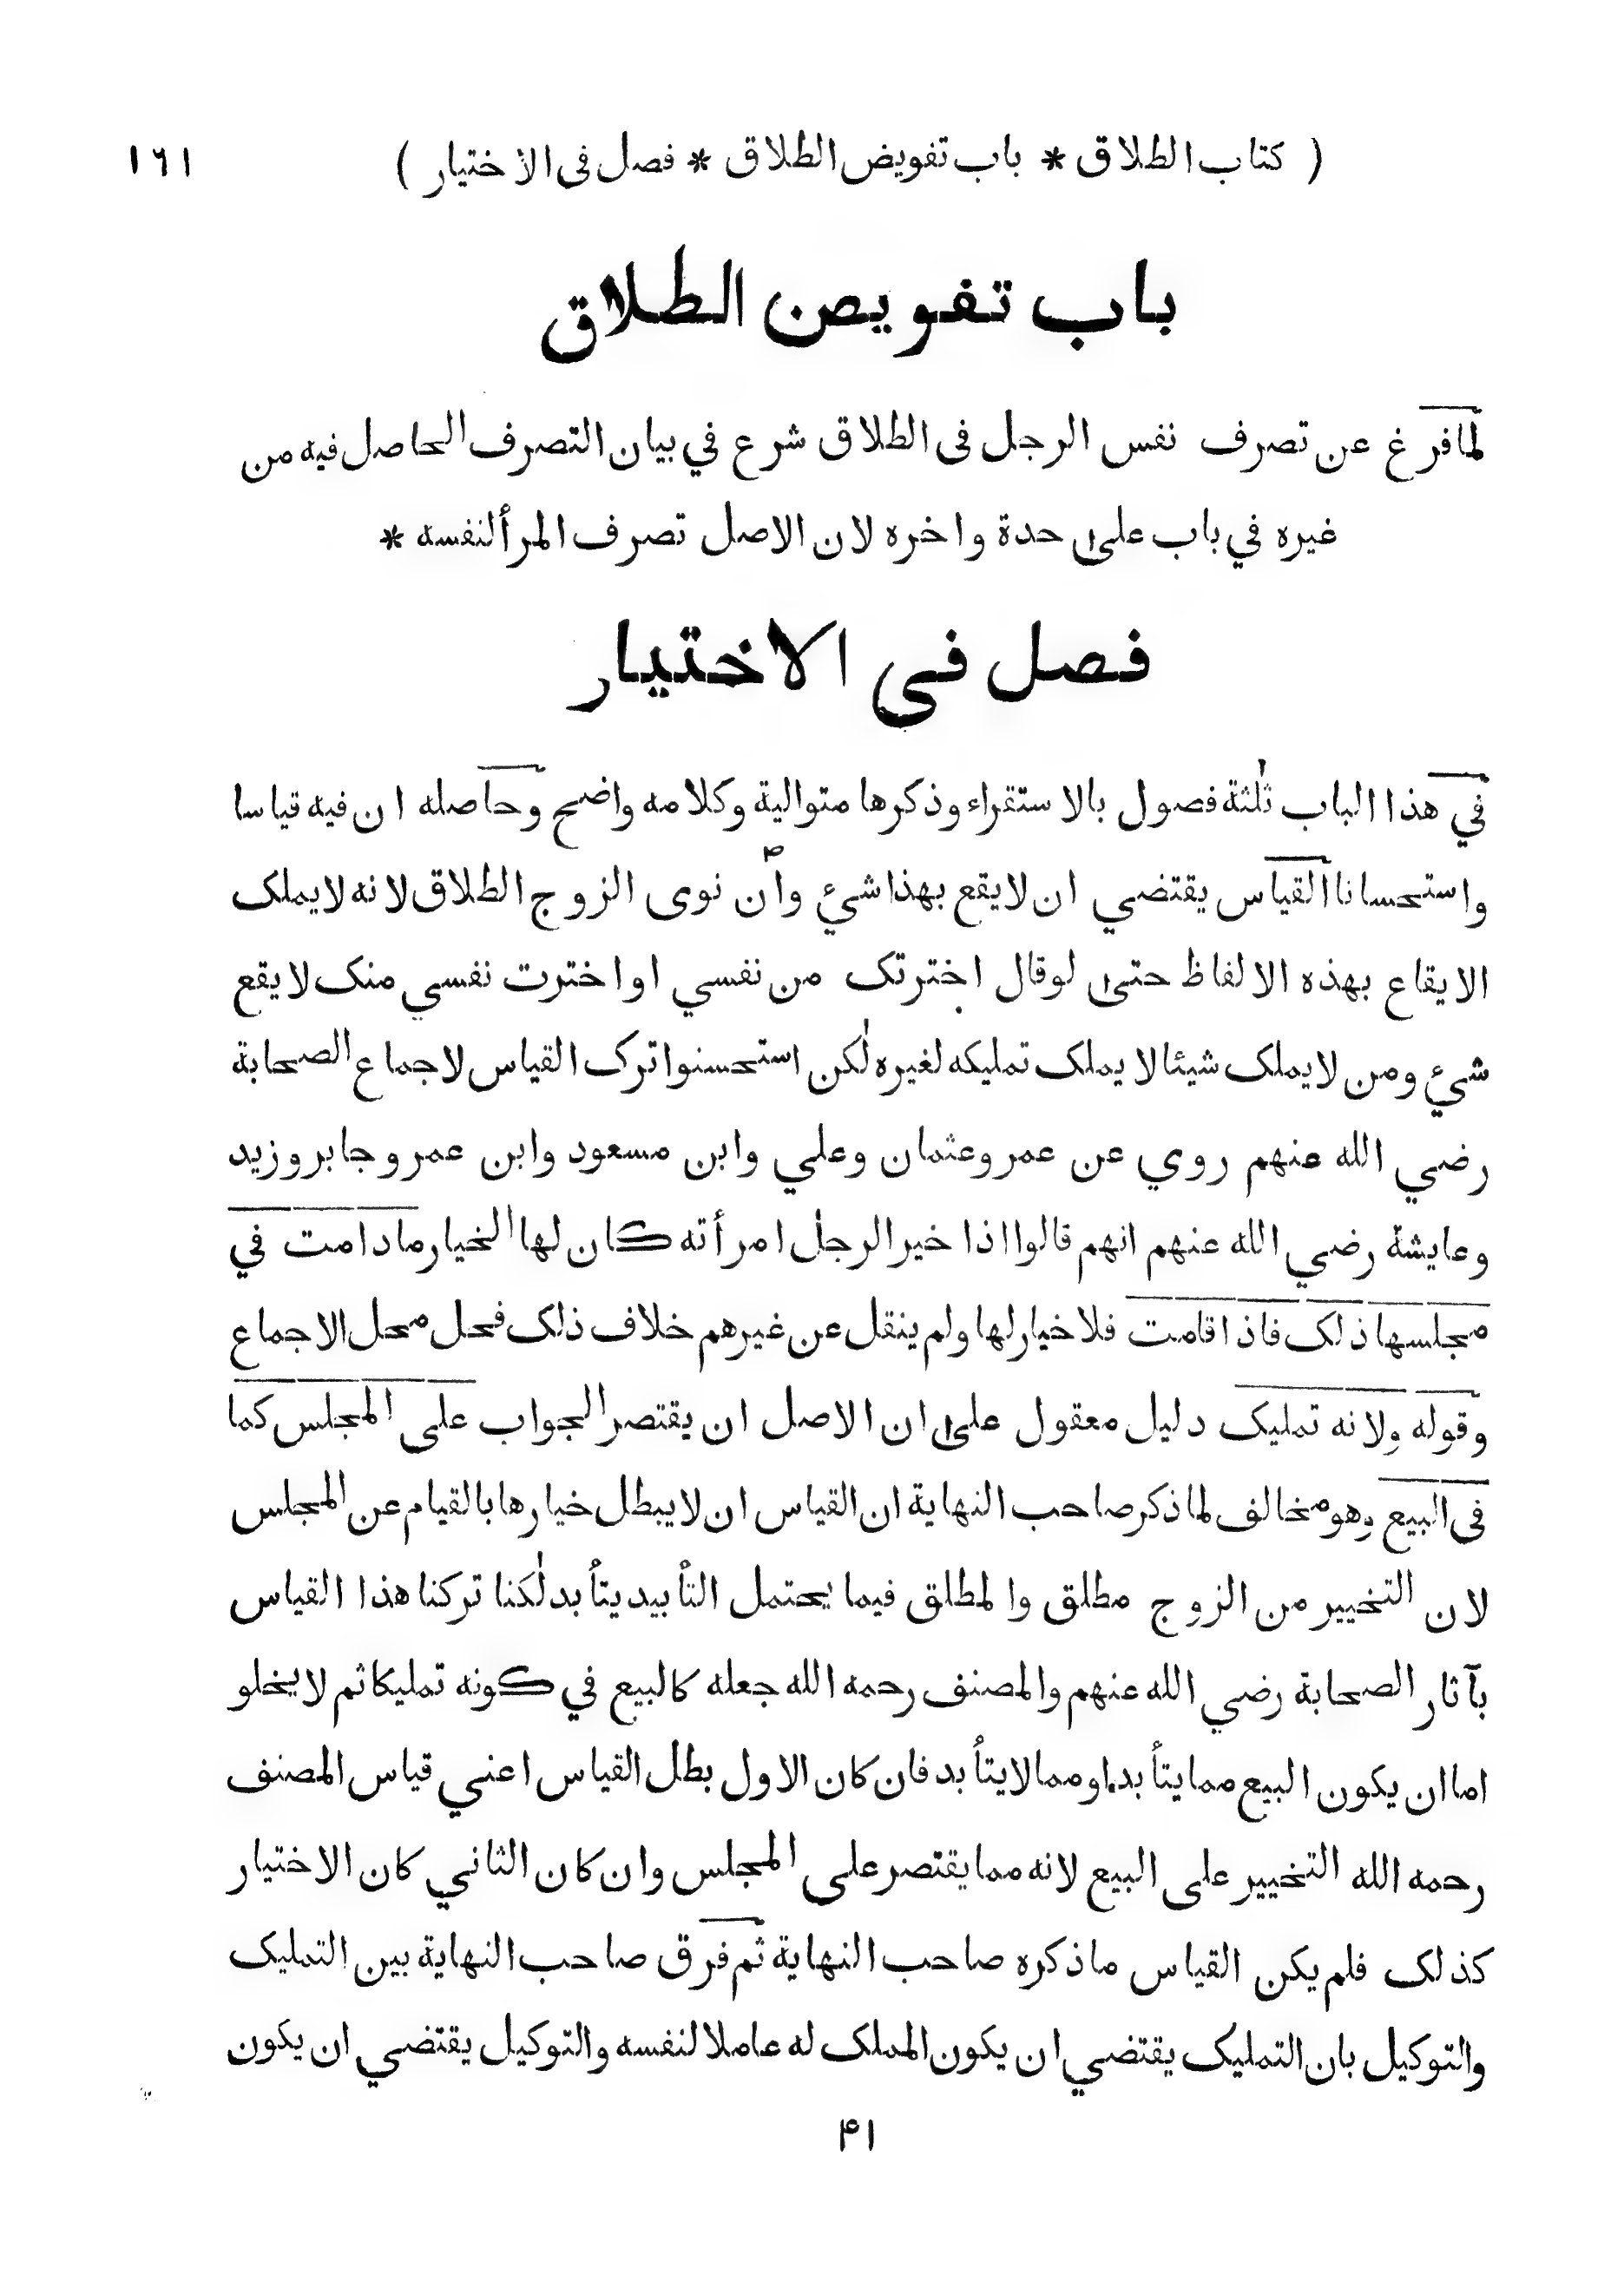 ( كتاب الطلاق * باب تفويض الطلاق * فصل فى الاختيار ) ١٦١
باب تفويض الطلاق
لما فرغ عن تصرف نفس الرجل فى الطلاق شرع في بيان التصرف الحاصل فيه من
غيره في باب على حدة واخره لان الاصل تصرف المرألنفسه *
فصل فى الاختيار
في هذا الباب ثلثة فصول بالاستقراء وذكرها متوالية وكلامه واضح وحاصله ان فيه قياسا
واستحسانا القياس يقتضي ان لايقع بهذا شيء وان نوى الزوج الطلاق لانه لايملك
الايقاع بهذه الالفاظ حتى لوقال اخترتك من نفسي او اخترت نفسي منك لايقع
شيء ومن لايملك شيئا لا يملك تمليكه لغيره لكن استحسنوا ترك القياس لاجماع الصحابة
رضي الله عنهم روي عن عمر وعثمان وعلي وابن مسعود وابن عمر وجابر وزيد
وعايشة رضي الله عنهم انهم قالوا اذا خير الرجل امرأته كان لها الخيار مادامت في
مجلسها ذلك فاذا قامت فلا خيار لها ولم ينقل عن غيرهم خلاف ذلك فحل محل الاجماع
وقوله ولانه تمليك دليل معقول على ان الاصل ان يقتصر الجواب على المجلس كما
فى البيع وهو مخالف لما ذكر صاحب النهاية ان القياس ان لايبطل خيارها بالقيام عن المجلس
لان التخيير من الزوج مطلق والمطلق فيما يحتمل التأبيد يتأبد لكنا تركنا هذا القياس
بآثار الصحابة رضي الله عنهم والمصنف رحمه الله جعله كالبيع في كونه تمليكا ثم لايخلو
اما ان يكون البيع مما يتأبد او مما لايتأبد فان كان الاول بطل القياس اعني قياس المصنف
رحمه الله التخيير على البيع لانه مما يقتصر على المجلس وان كان الثاني كان الاختيار
كذلك فلم يكن القياس ما ذكره صاحب النهاية ثم فرق صاحب النهاية بين التمليك
والتوكيل بان التمليك يقتضي ان يكون المملك له عاملا لنفسه والتوكيل يقتضي ان يكون
۴۱